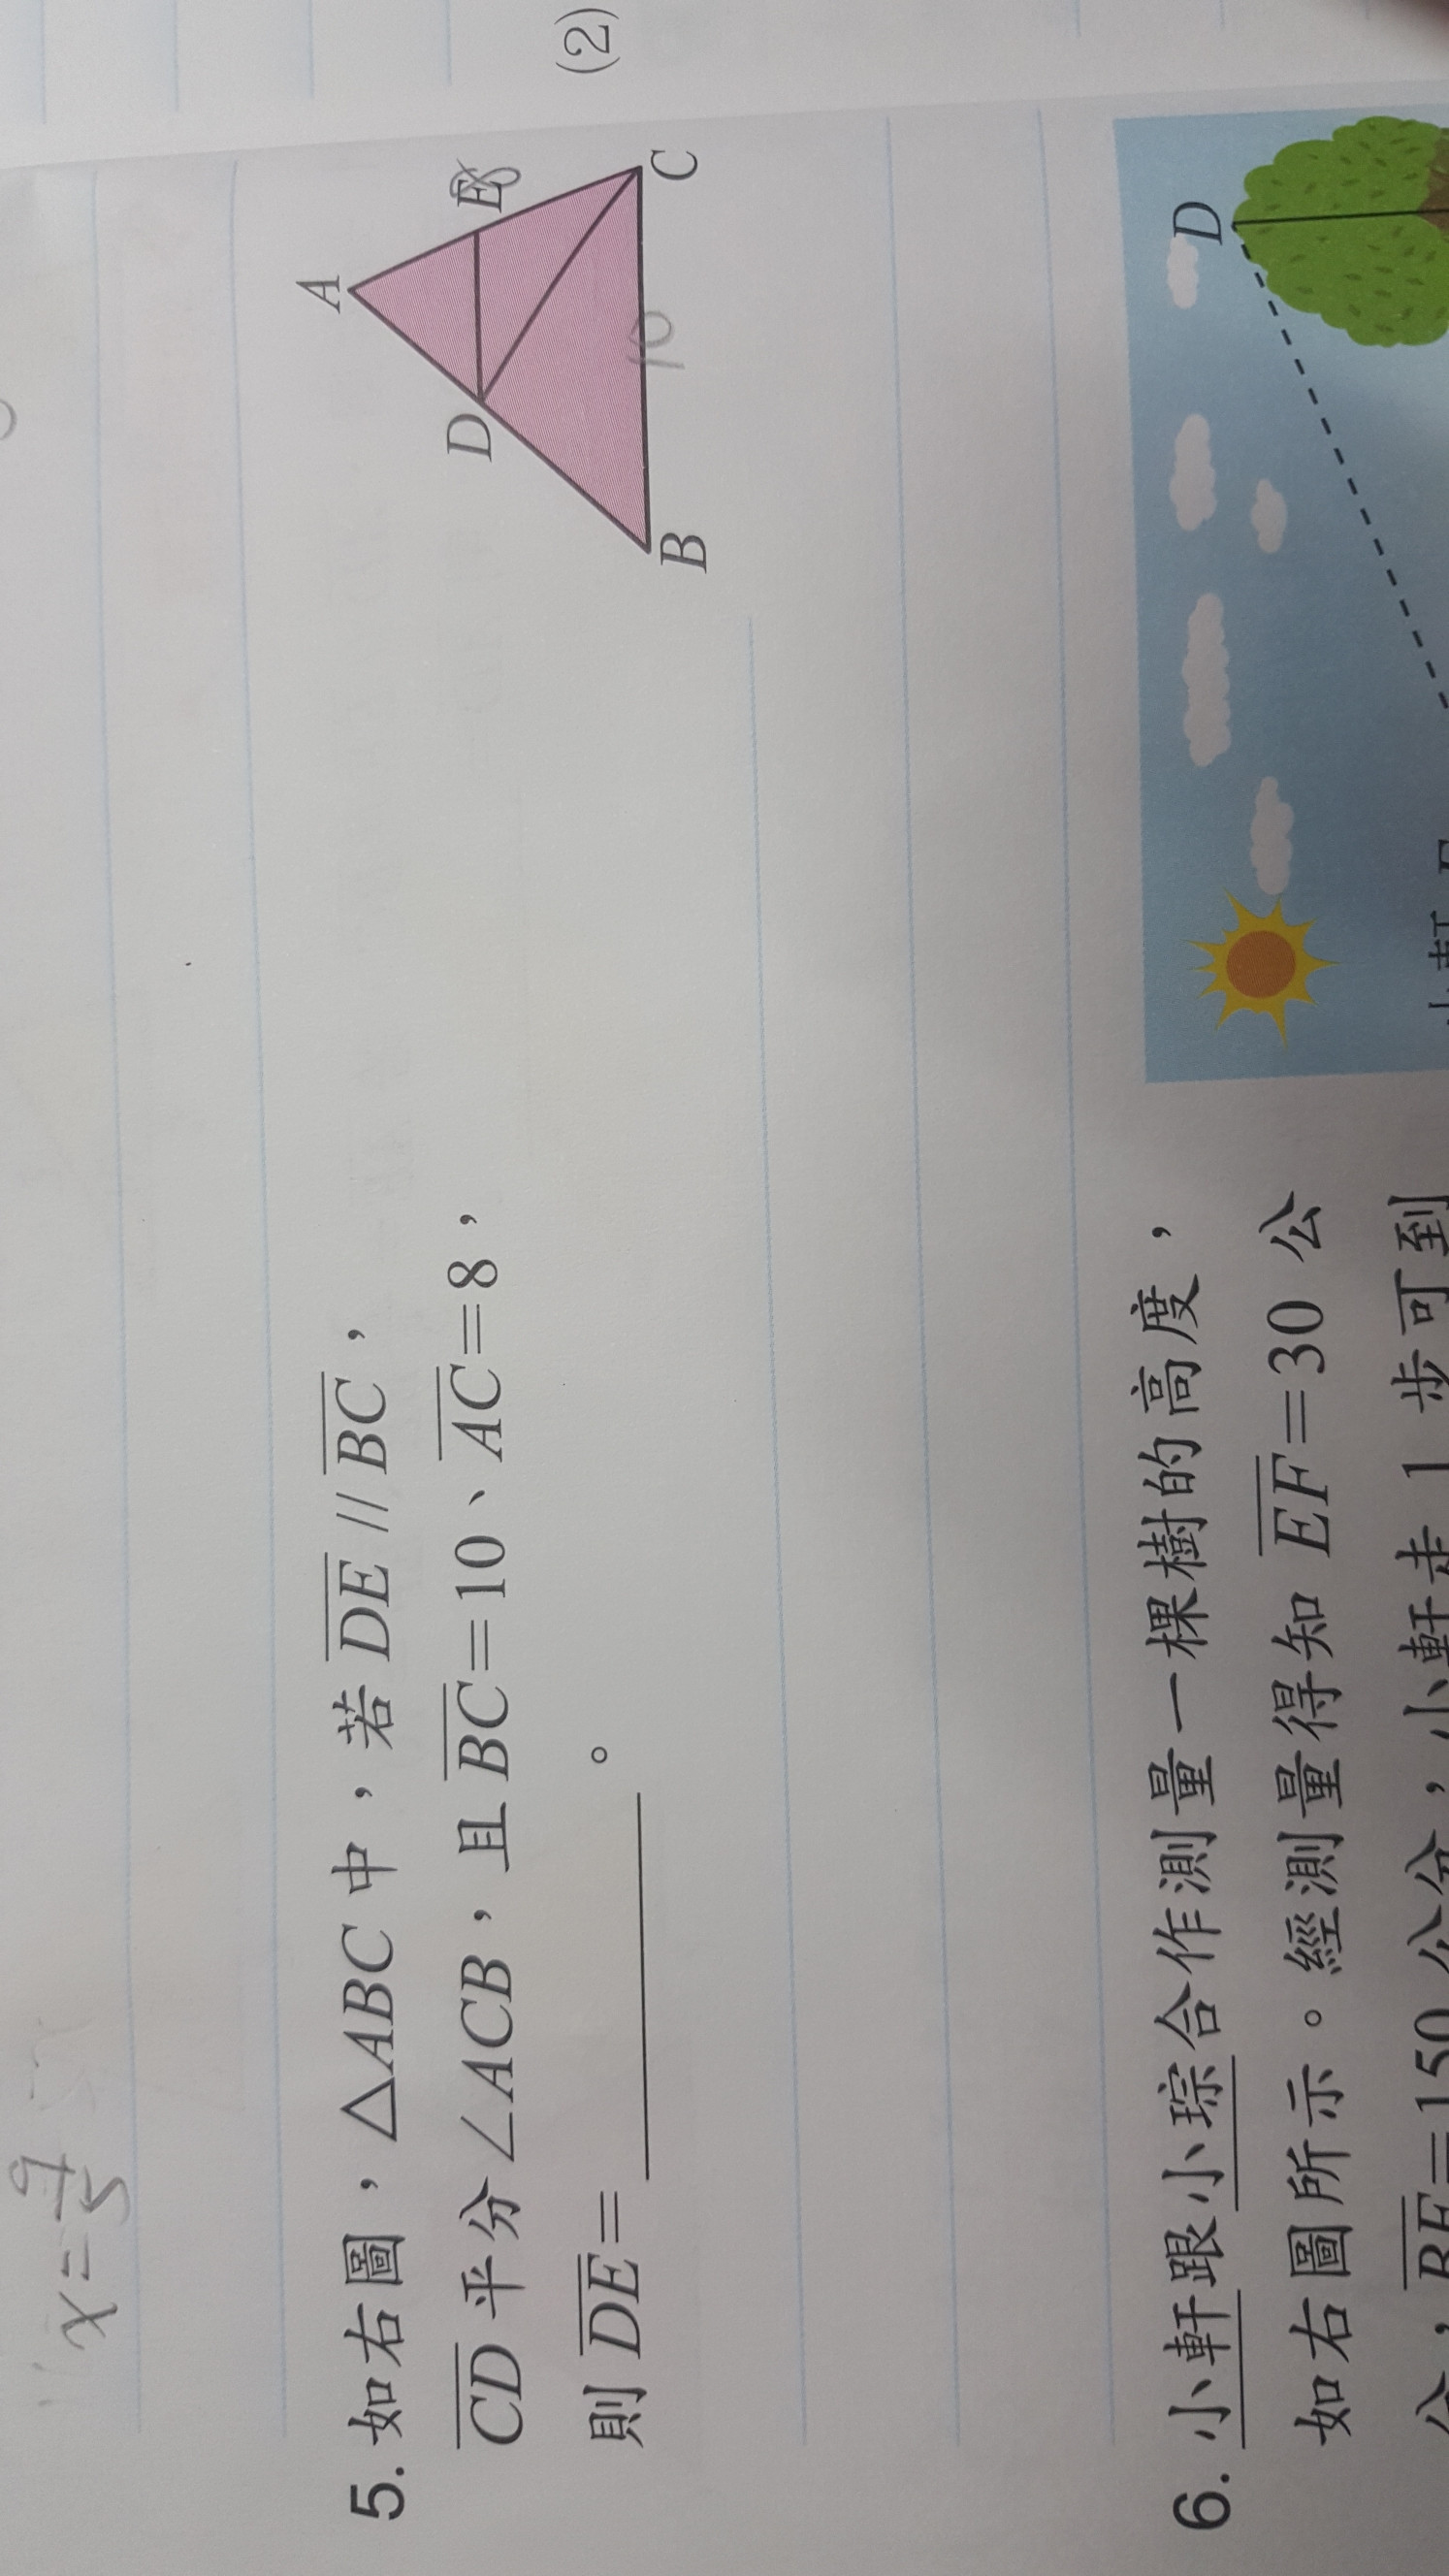 x=9/5
5. 如右圖，△ABC 中，若 DE // BC，
CD 平分∠ACB，且 BC=10、AC=8，
則 DE=________。
A
D
E
8
B
C
10
(2)
6. 小軒跟小琮合作測量一棵樹的高度，
如右圖所示。經測量得知 EF=30 公
分，BE=150 公分，小軒走 1 步可到
D